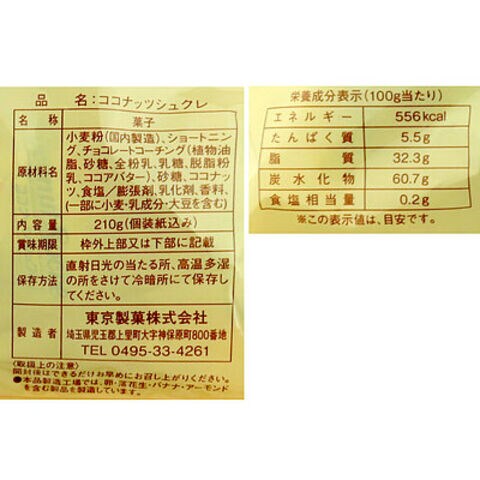 品 名:ココナッツシュクレ
名 称 菓子
原材料名 小麦粉(国内製造)、ショートニン
グ、チョコレートコーチング(植物油
脂、砂糖、全粉乳、乳糖、脱脂粉
乳、ココアバター)、砂糖、ココナッ
ツ、食塩/膨張剤、乳化剤、香料、
(一部に小麦・乳成分・大豆を含む)
内容量 210g(個装紙込み)
賞味期限 枠外上部又は下部に記載
保存方法 直射日光の当たる所、高温多湿
の所をさけて冷暗所にて保存し
てください。
製造者 東京製菓株式会社
埼玉県児玉郡上里町大字神保原町800番地
TEL 0495-33-4261
〈取扱上の注意〉
開封後はできるだけお早めにお召し上がりください。
●本品製造工場では、卵・落花生・バナナ・アーモンド
を含む製品を製造しています。
栄養成分表示(100g当たり)
エネルギー 556kcal
たんぱく質 5.5g
脂質 32.3g
炭水化物 60.7g
食塩相当量 0.2g
※この表示値は、目安です。